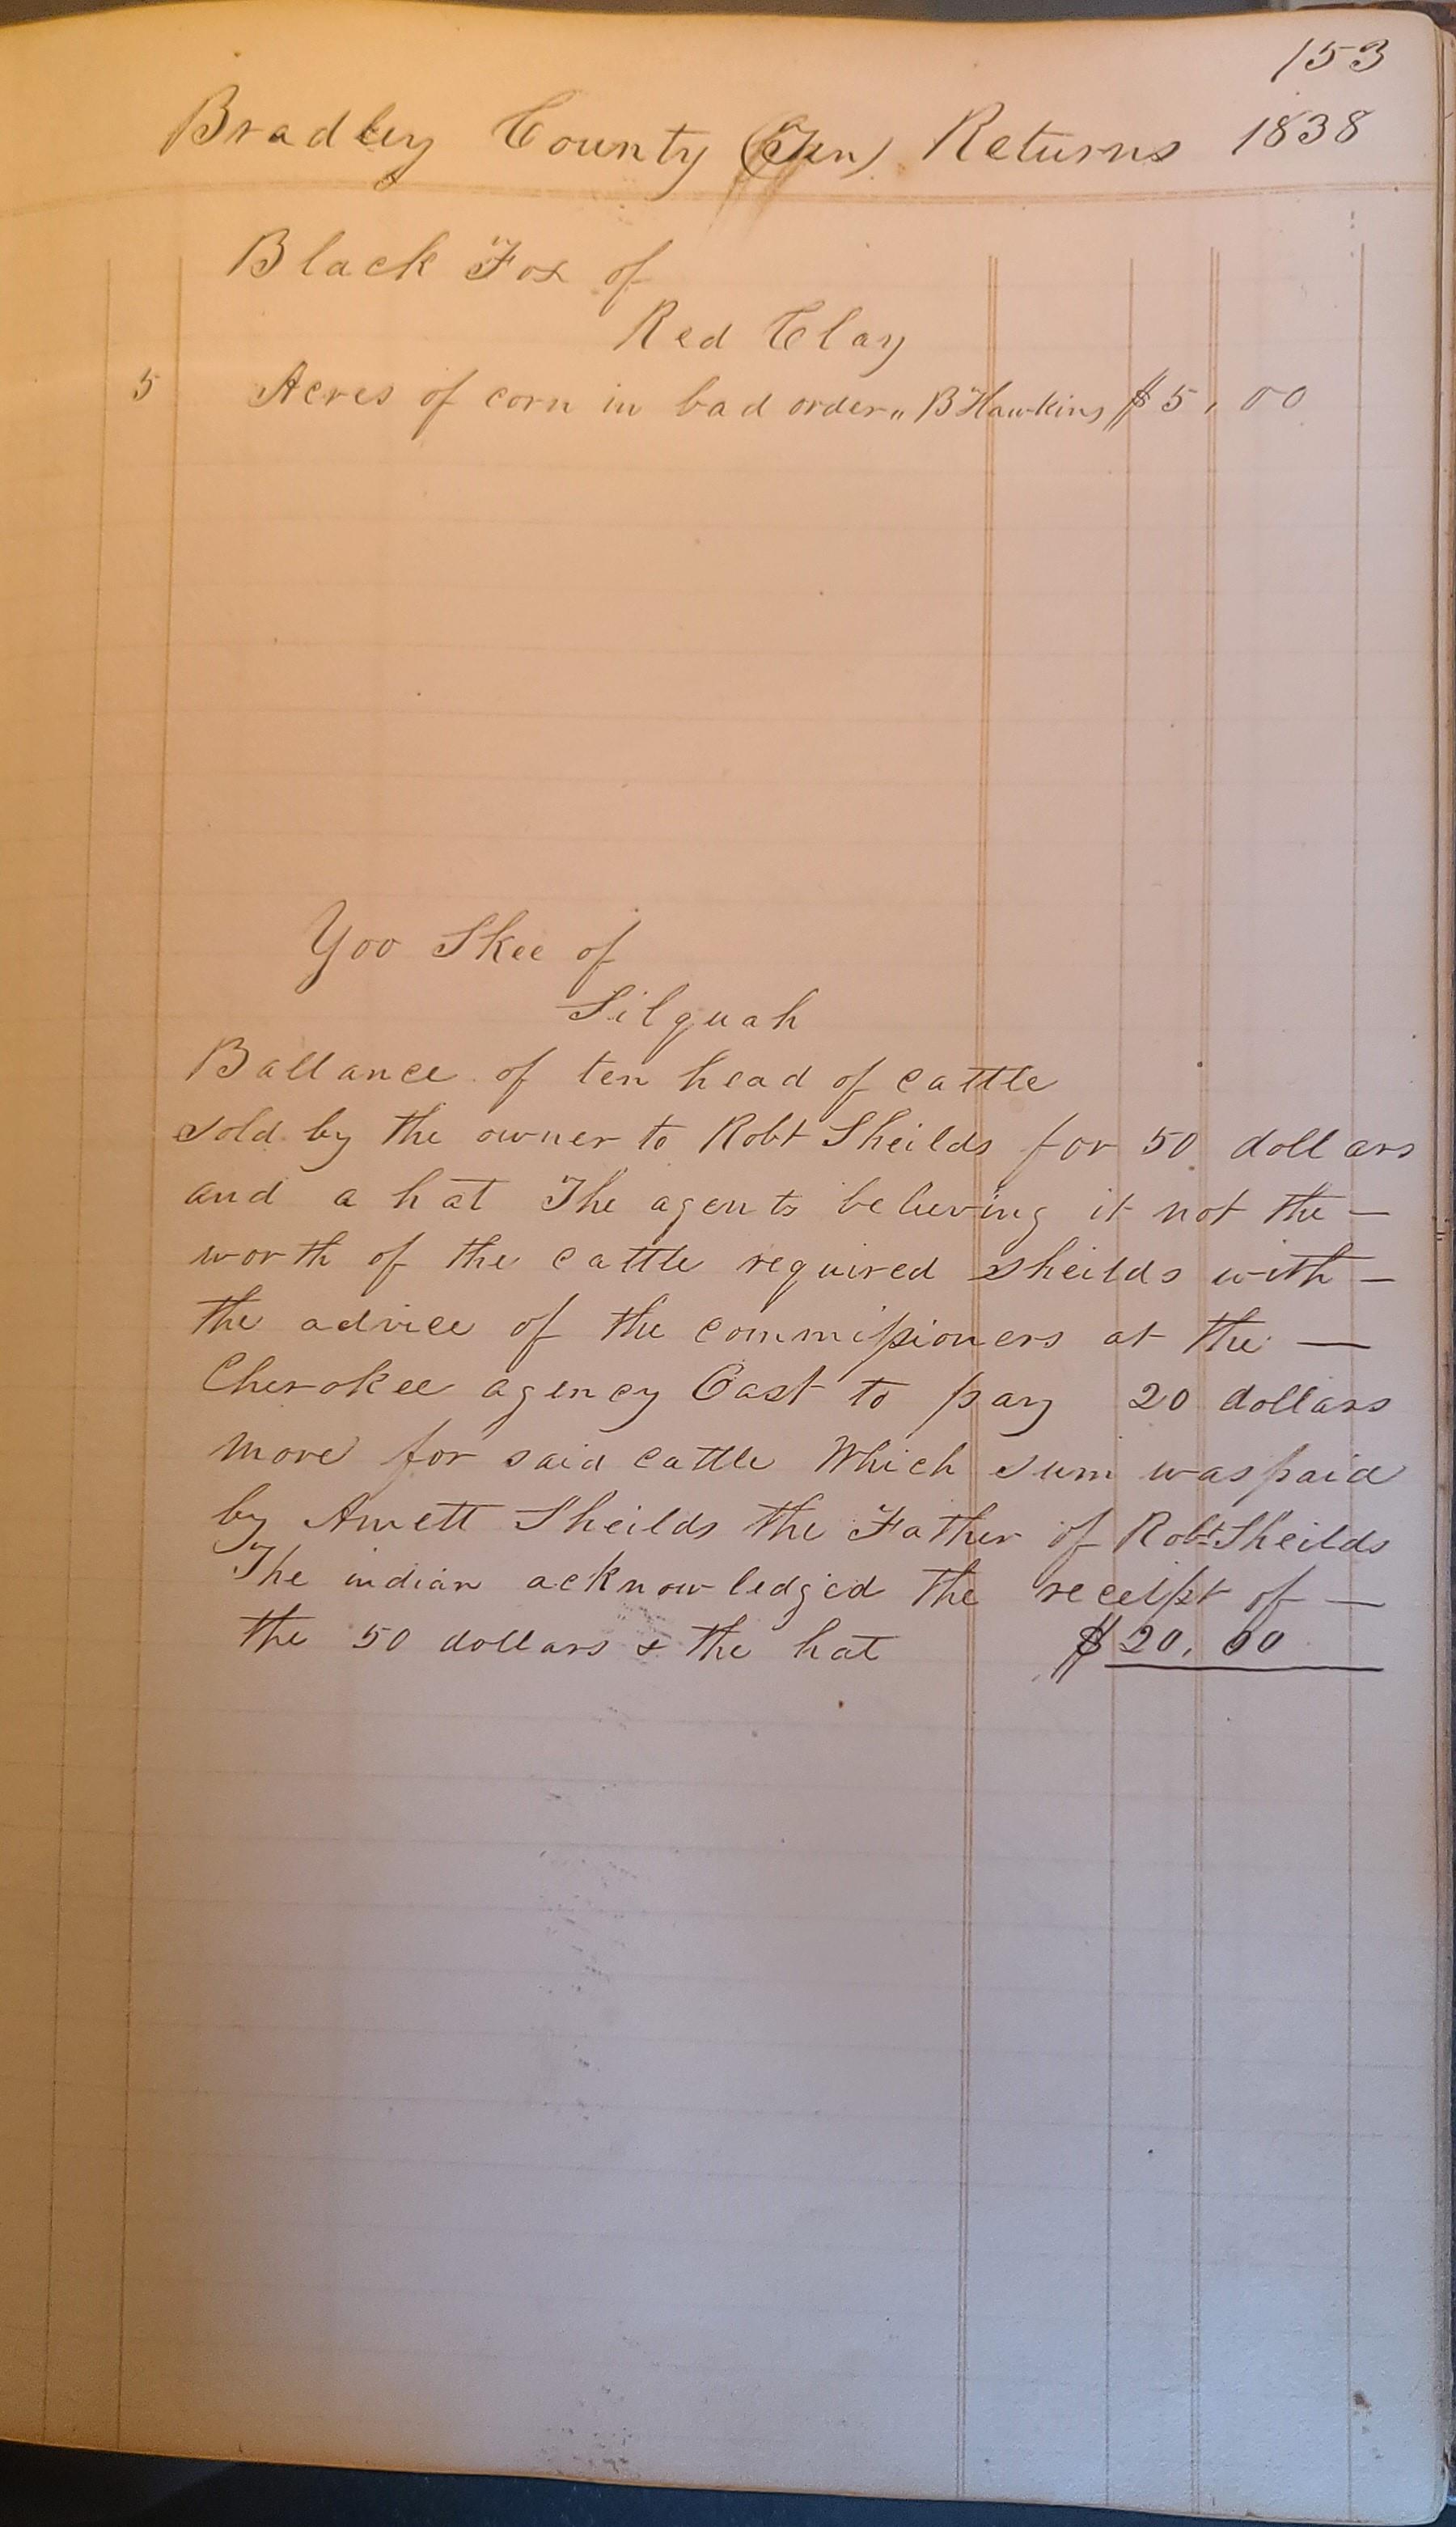 153
Bradley County (Ten) Returns 1838
Black Fox of
Red Clay
5 Acres of corn in bad order,, B Hawkins $5,00
Yoo Skee of
Silquah
Ballance of ten head of cattle
sold by the owner to Robt Sheilds for 50 dollars
and a hat The agents believing it not the —
worth of the cattle required Sheilds with —
the advice of the commissioners at the —
Cherokee agency East to pay 20 dollars
more for said cattle Which sum was paid
by Sheilds the Father of Robt Sheilds
The indian acknowledged the receipt of —
the 50 dollars & the hat $20,00